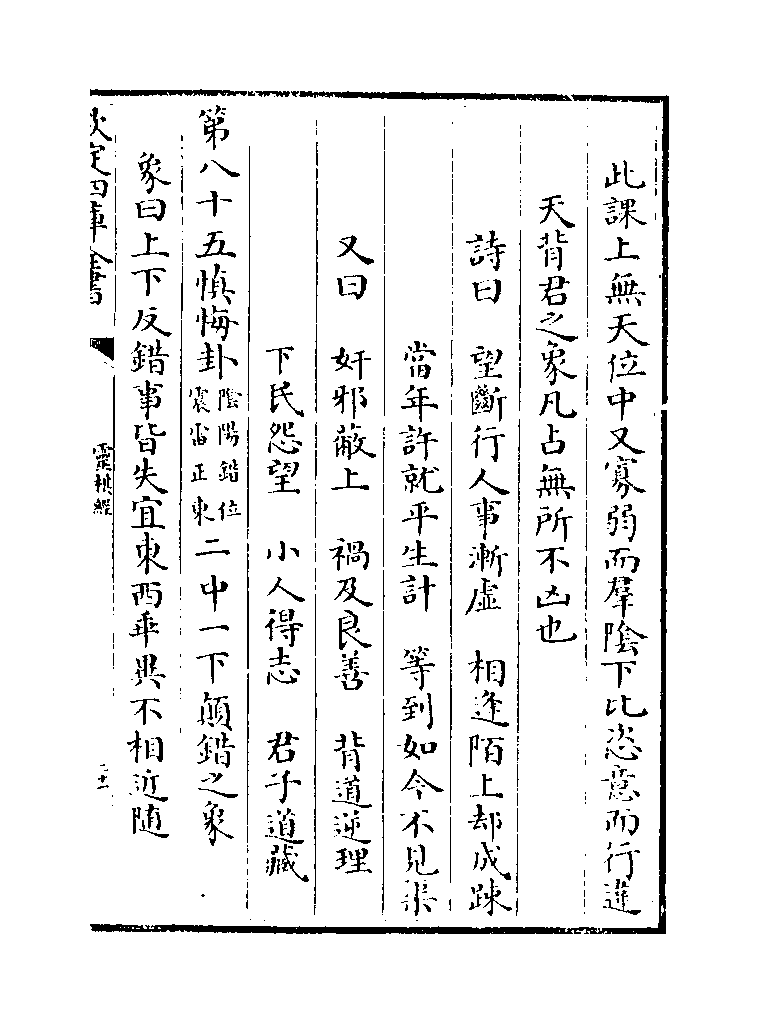 此課上無天位中又寡弱而羣陰下比恣意而行違
天背君之象凡占無所不凶也
詩曰　望斷行人事漸虛　相逢陌上却成踈
當年許就平生計　等到如今不見渠
又曰　奸邪蔽上　禍及良善　背道逆理
下民怨望　小人得志　君子道藏
第八十五慎悔卦陰陽錯位震雷正東二中一下顛錯之象
象曰上下反錯事皆失宜東西乖異不相近隨
欽定四庫全書
靈棋經